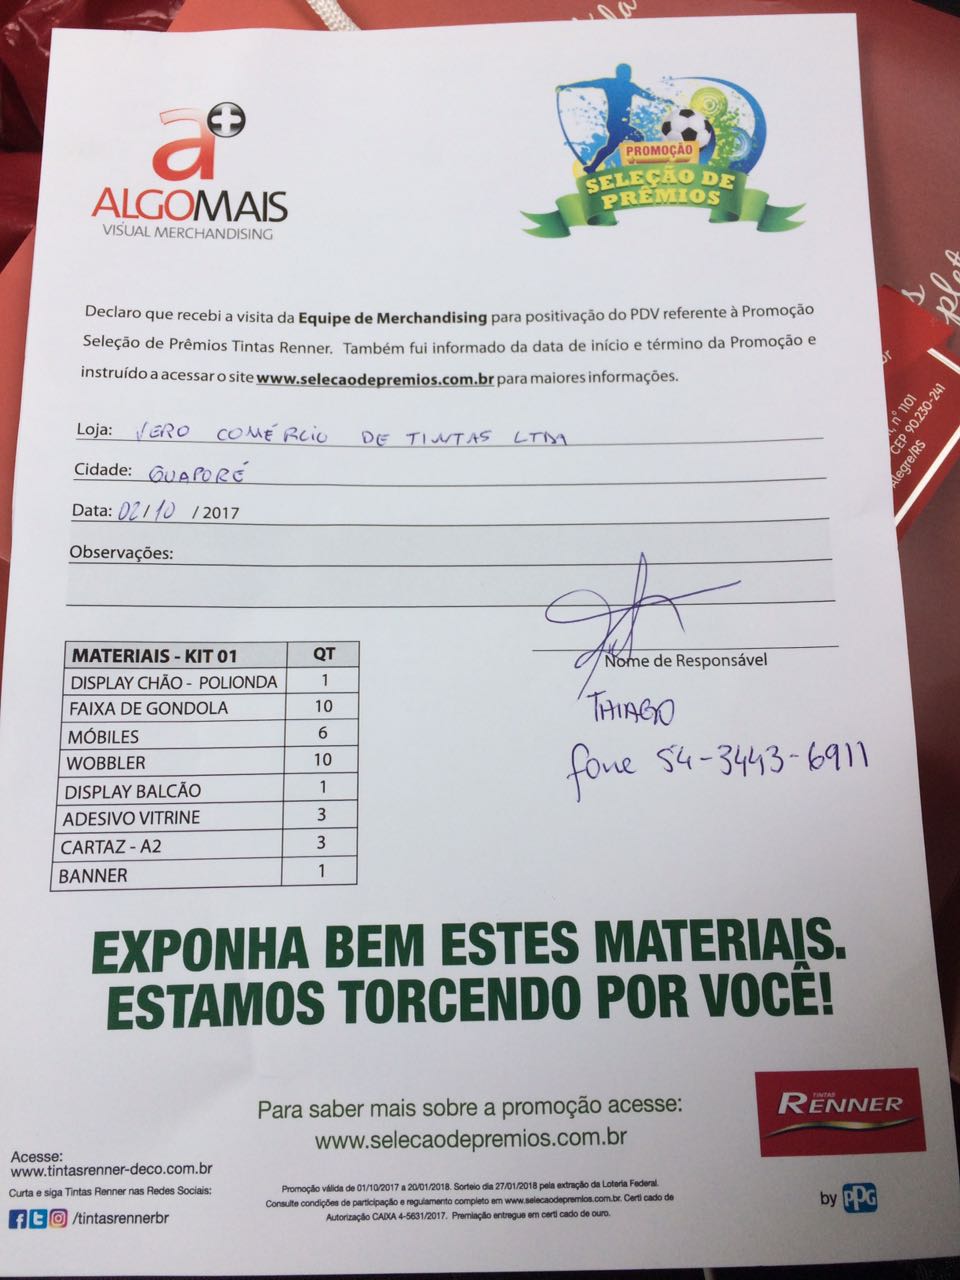 a+
ALGOMAIS
VISUAL MERCHANDISING
PROMOÇÃO
SELEÇÃO DE
PRÊMIOS
Declaro que recebi a visita da Equipe de Merchandising para positivação do PDV referente à Promoção
Seleção de Prêmios Tintas Renner. Também fui informado da data de início e término da Promoção e
instruído a acessar o site www.selecaodepremios.com.br para maiores informações.
Loja: VERO COMÉRCIO DE TINTAS LTDA
Cidade: GUAPORÉ
Data: 02/10 / 2017
Observações:
Nome de Responsável
THIAGO
fone 54-3443-6911
MATERIAIS - KIT 01 QT
DISPLAY CHÃO - POLIONDA 1
FAIXA DE GONDOLA 10
MÓBILES 6
WOBBLER 10
DISPLAY BALCÃO 1
ADESIVO VITRINE 3
CARTAZ - A2 3
BANNER 1
EXPONHA BEM ESTES MATERIAIS.
ESTAMOS TORCENDO POR VOCÊ!
Para saber mais sobre a promoção acesse:
www.selecaodepremios.com.br
TINTAS
RENNER
Acesse:
www.tintasrenner-deco.com.br
Curta e siga Tintas Renner nas Redes Sociais:
/tintasrennerbr
Promoção válida de 01/10/2017 a 20/01/2018. Sorteio dia 27/01/2018 pela extração da Loteria Federal.
Consulte condições de participação e regulamento completo em www.selecaodepremios.com.br. Certi cado de
Autorização CAIXA 4-5631/2017. Premiação entregue em certi cado de ouro.
by PPG
nº 1101
CEP 90.230-241
Alegre/RS